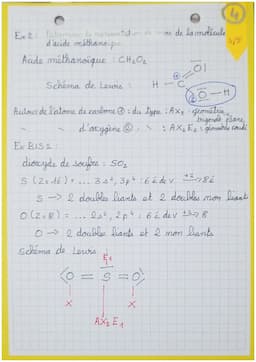 4
Ex 2 : Déterminer la représentation de Lewis de la molécule
d'acide méthanoïque
5/5
Acide méthanoïque : CH₂O₂
Schéma de Lewis :
H - C
O
O - H
Autour de l'atome de carbone ① : du type : AX₃ : géométrie
trigonale plane
" " d'oxygène ② : " : AX₂E₂ : géométrie coudé
Ex BIS 2 :
dioxyde de soufre : SO₂
S (Z=16) = ... 3s², 3p⁴ : 6 é de v → 8é
S → 2 doubles liants et 2 doubles non liant
O (Z=8) = ... 2s², 2p⁴ : 6 é de v → 8
O → 2 doubles liants et 2 non liants
Schéma de Lewis
E₁
O = S = O
X X
AX₂E₁